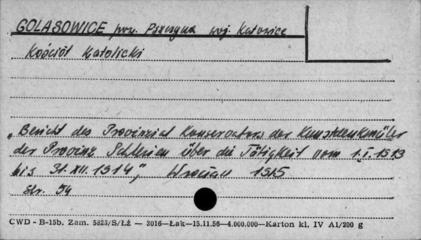 GOLASOWICE pow. Pszczyna woj. Katowice
Kościół Katolicki
"Bericht des Provinzial Konservators der Kunstdenkmäler
der Provinz Schlesien über die Tätigkeit vom 1.I.1913
bis 31.XII.1914", Wrocław 1915
str. 54
CWD - B-15b. Zam. 5823/S/ŁŻ — 3016—Łak—15.11.56—4.000.000—Karton kl. IV A1/200 g